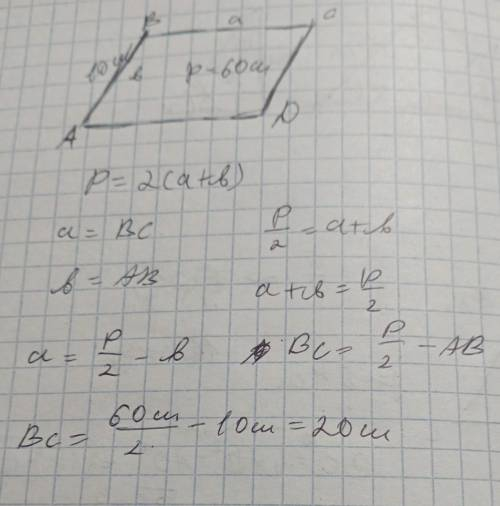 B a C
10см в P-60см
A D
P = 2(a+в)
a = BC P/2 = a+в
в = AB a+в = P/2
a = P/2 - в BC = P/2 - AB
BC = 60см/2 - 10см = 20см